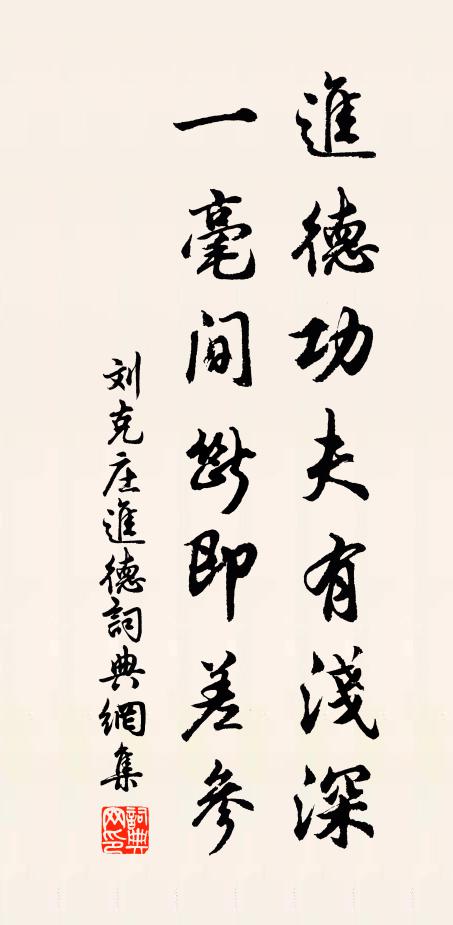 進德功夫有淺深
一毫間斷即差參
刘克庄進德詞典網集
詞典網印